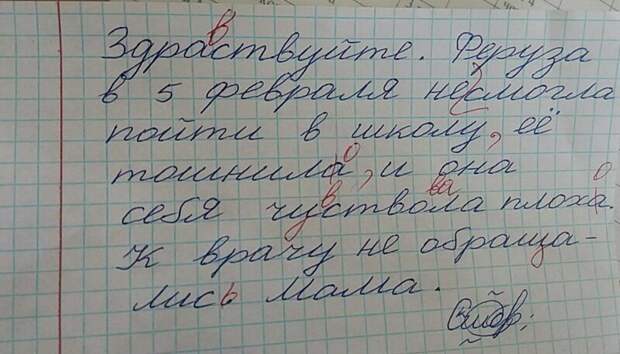 Здравствуйте. Феруза
в 5 февраля не смогла
пойти в школу, её
тошнило, и она
себя чувствовала плохо.
К врачу не обраща-
лись Мама.